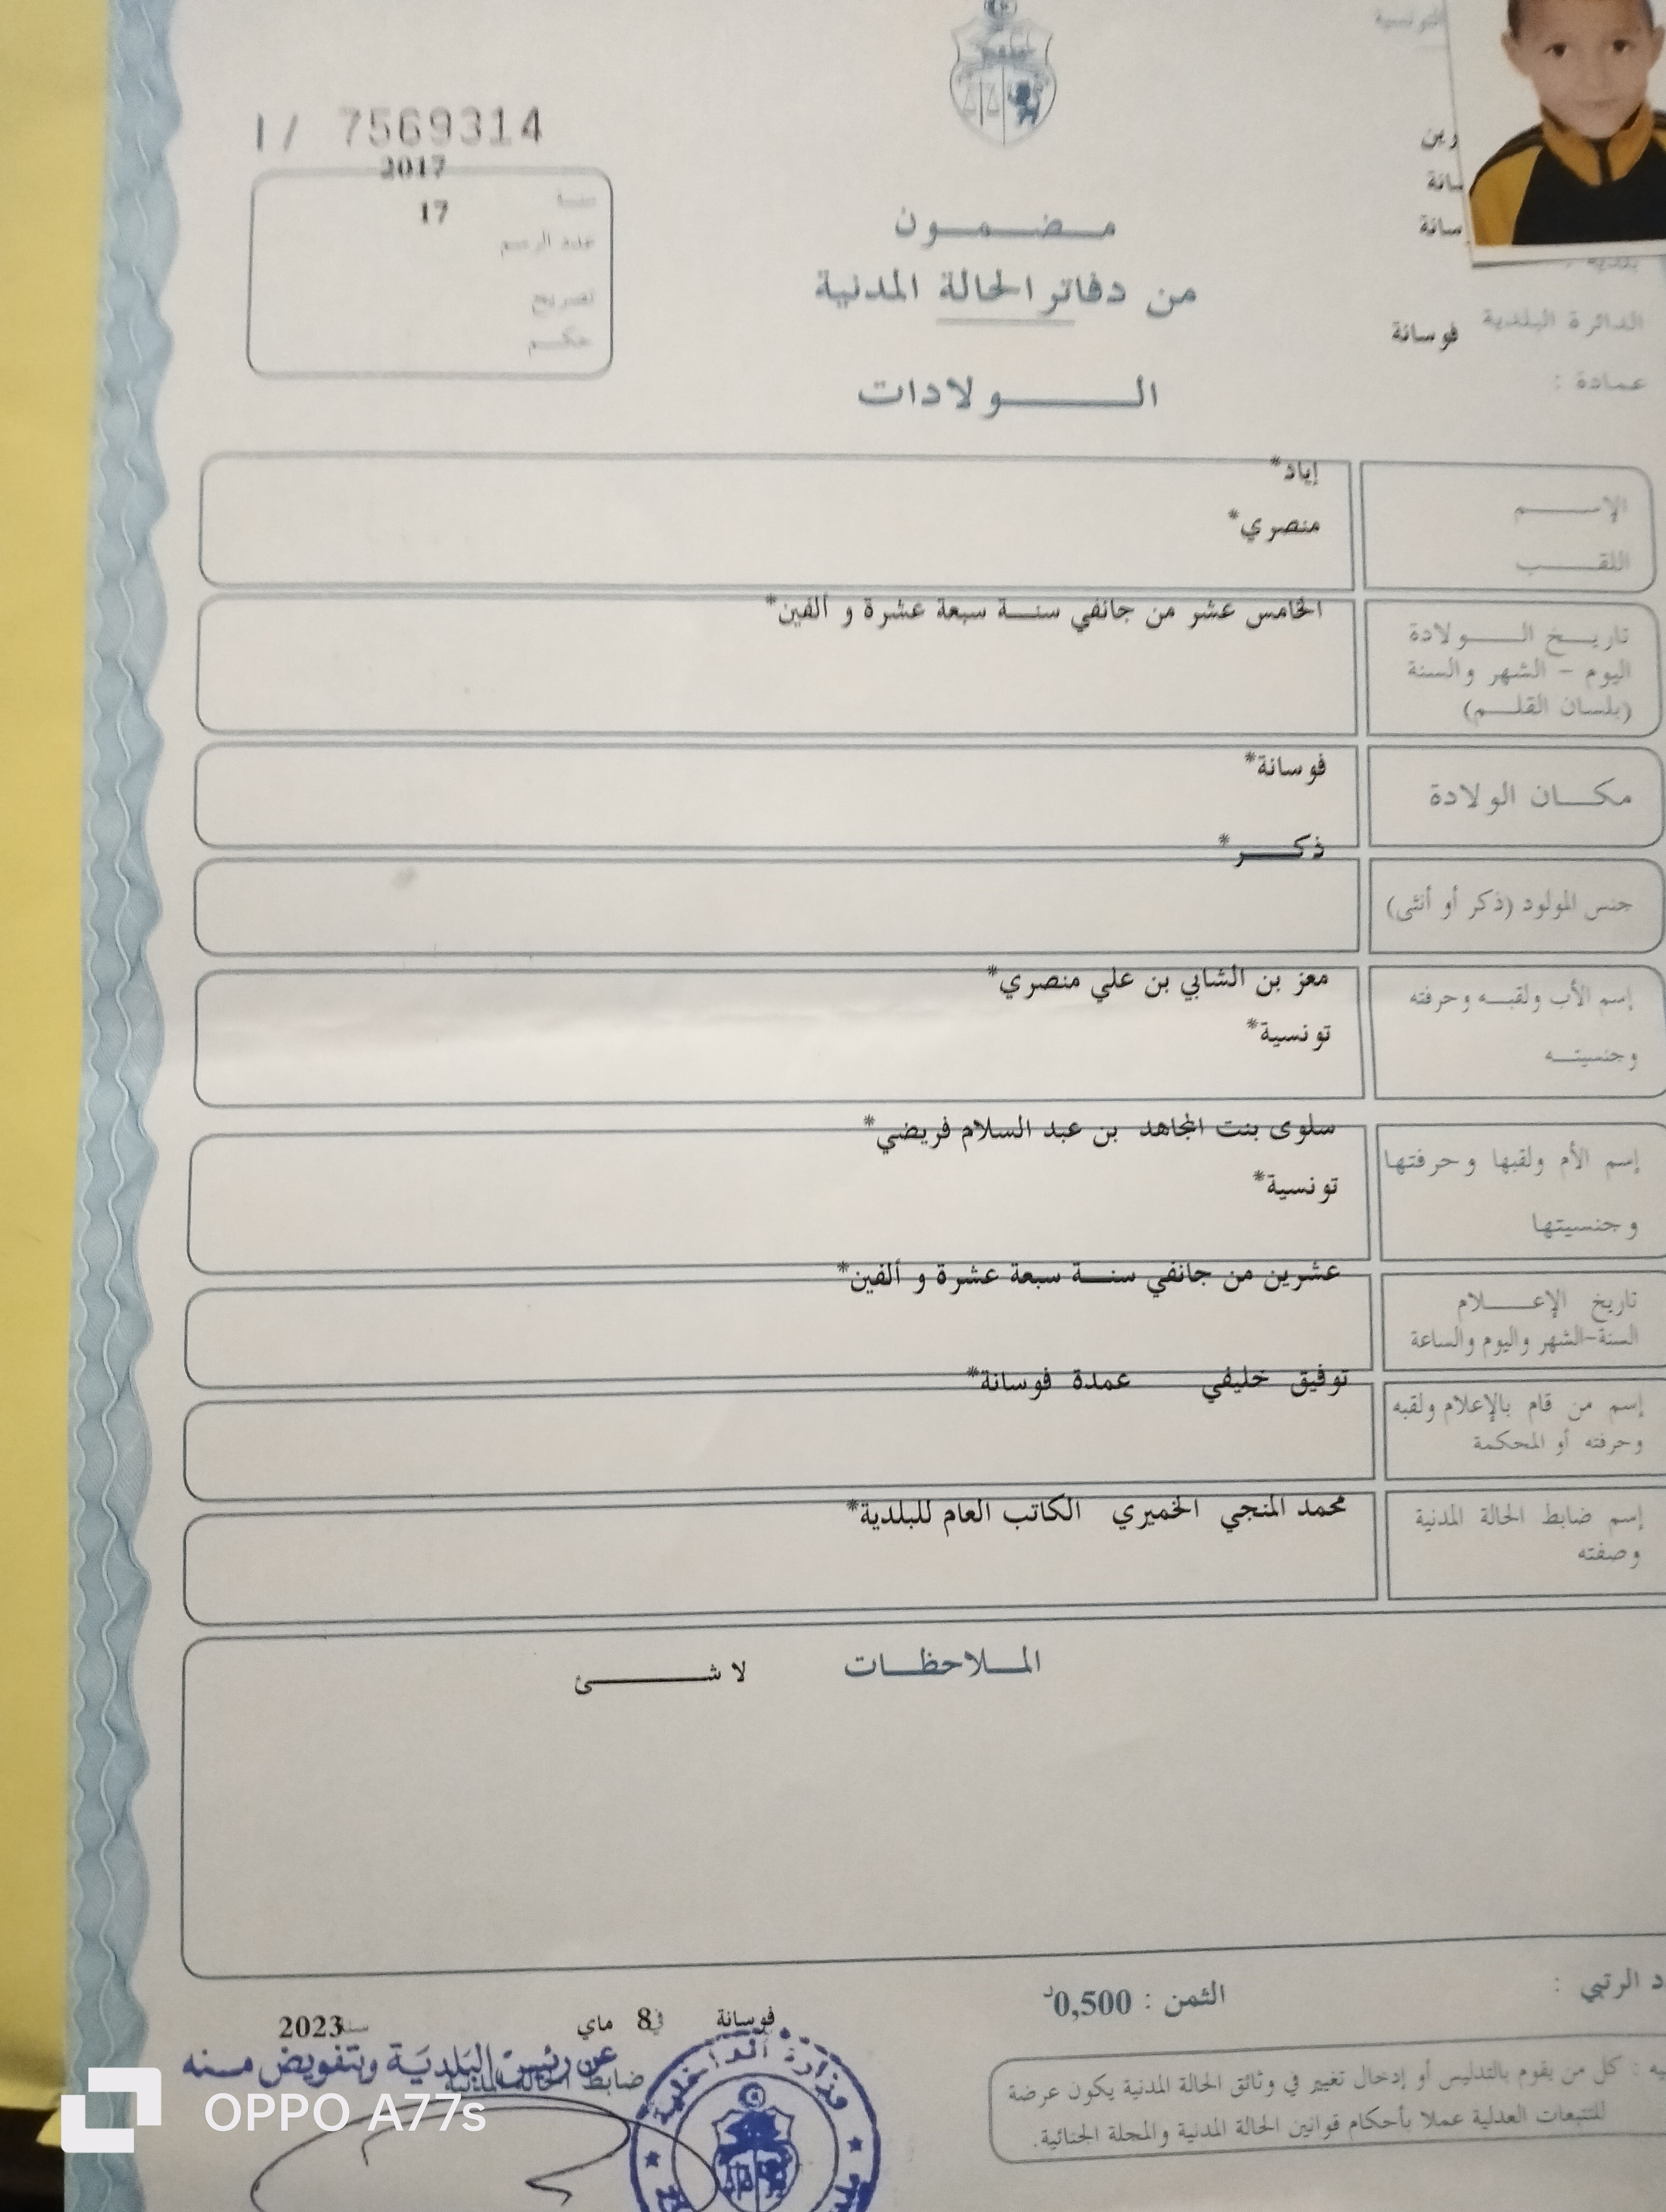 التونسية
I / 7569314
2017
سنة
17
عدد الرسم
تصريح
حكم
مضمون
من دفاتر الحالة المدنية
الولادات
الدائرة البلدية
فوسانة
عمادة :
الإسم
إياد*
اللقب
منصري*
تاريخ الولادة
اليوم - الشهر والسنة
(بلسان القلم)
الخامس عشر من جانفي سنة سبعة عشرة و ألفين*
مكان الولادة
فوسانة*
جنس المولود (ذكر أو أنثى)
ذكر*
إسم الأب ولقبه وحرفته
وجنسيته
معز بن الشابي بن علي منصري*
تونسية*
إسم الأم ولقبها وحرفتها
وجنسيتها
سلوى بنت المجاهد بن عبد السلام فريضي*
تونسية*
تاريخ الإعلام
السنة-الشهر واليوم والساعة
عشرين من جانفي سنة سبعة عشرة و ألفين*
إسم من قام بالإعلام ولقبه
وحرفته أو المحكمة
توفيق خليفي عمدة فوسانة*
إسم ضابط الحالة المدنية
وصفته
محمد المنجي الخميري الكاتب العام للبلدية*
الملاحظات
لا شئ
الرتبي :
الثمن : 0,500د
فوسانة في 8 ماي سنة 2023
عن رئيس البلدية وبتفويض منه
ضابط الحالة المدنية
وزارة الداخلية
كل من يقوم بالتدليس أو إدخال تغيير في وثائق الحالة المدنية يكون عرضة
للتتبعات العدلية عملا بأحكام قوانين الحالة المدنية والمجلة الجنائية.
OPPO A77s